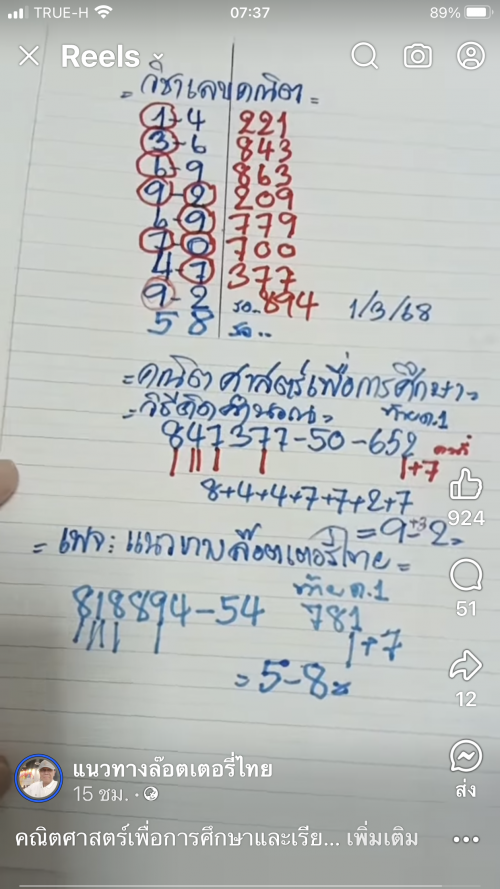 TRUE-H 07:37 89%
Reels
= วิชาเลขคณิต =
1-4 221
3-6 843
6-9 863
9-2 209
6-9 779
7-0 700
4-7 377
9-2 รอ..894 1/3/68
5 8 รอ..
=คณิตศาสตร์เพื่อการศึกษา=
=วิธีคิดคำนวณ= ท้าย ด.1
847377-50-652 คงที่
1+7
8+4+4+7+7+2+7
=9-2= +3
924
= เพจ: แนวทางล๊อตเตอรี่ไทย =
818894-54 ท้าย ด.1
781
+7
51
= 5-8=
12
แนวทางล๊อตเตอรี่ไทย
15 ชม. ·
ส่ง
คณิตศาสตร์เพื่อการศึกษาและเรีย... เพิ่มเติม